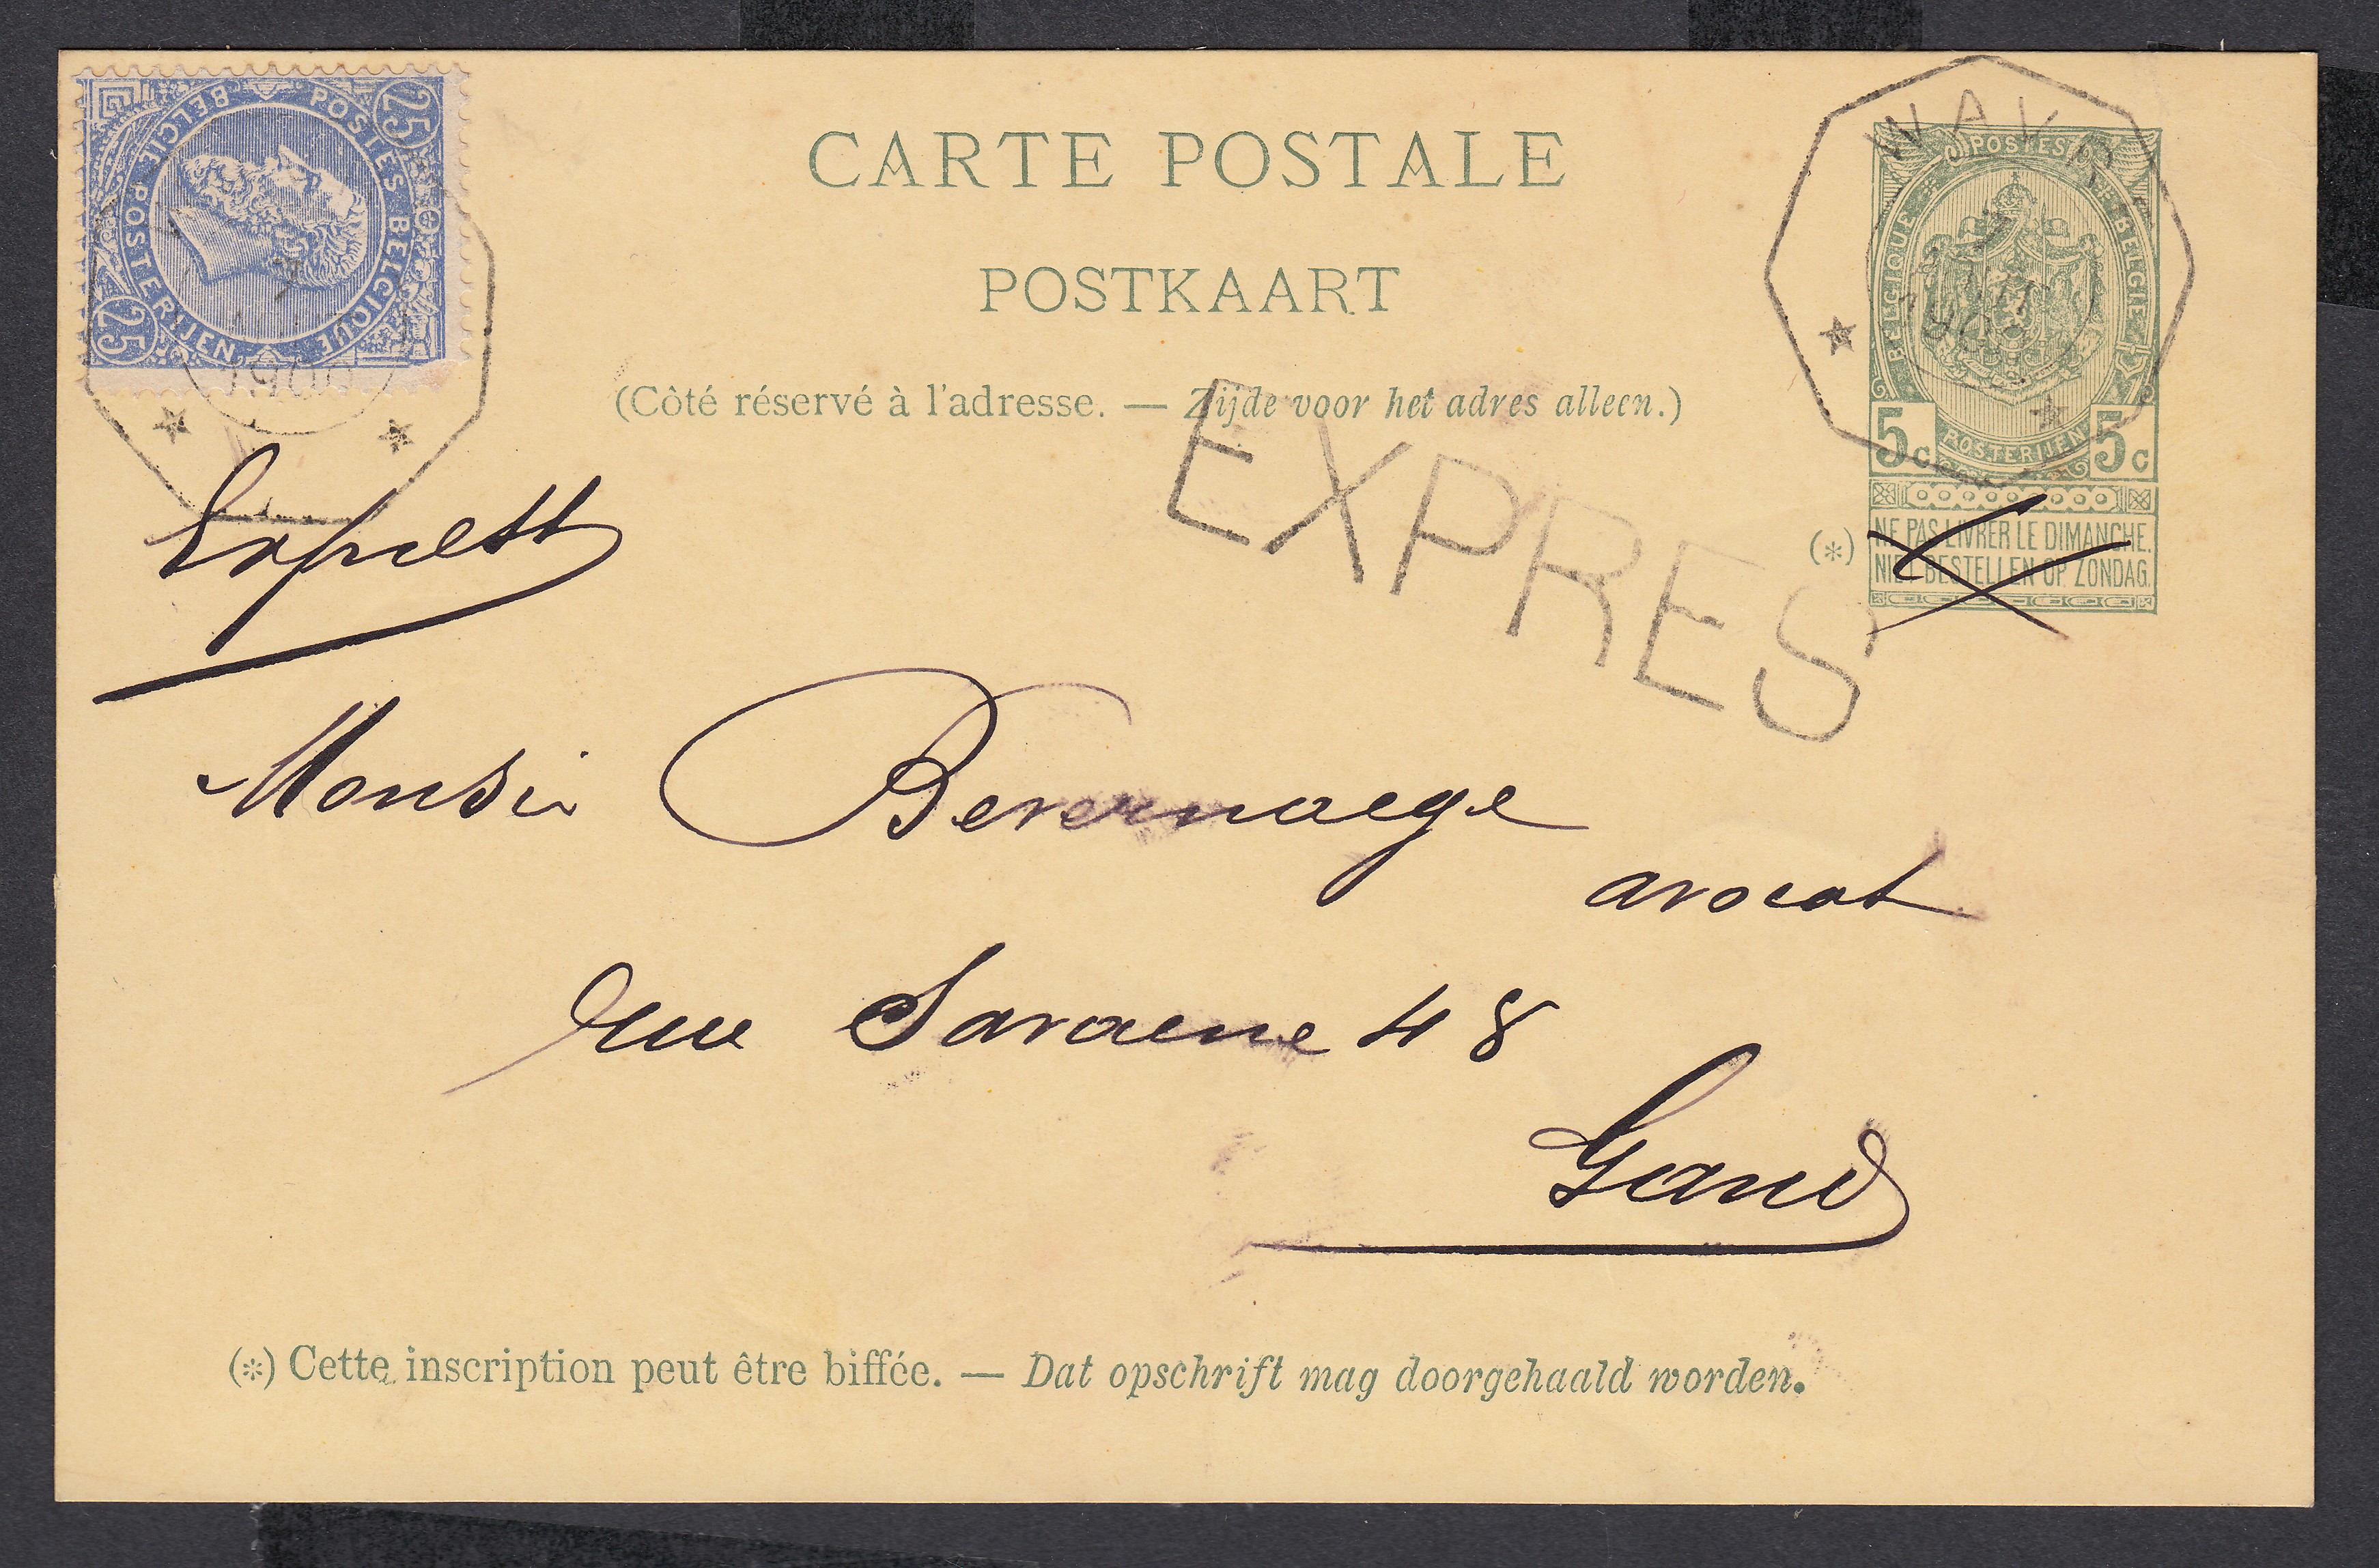 CARTE POSTALE
POSTKAART
(Côté réservé à l'adresse. — Zijde voor het adres alleen.)
POSTES BELGIQUE
BELGIË POSTERIJEN
25 25
WAVR
POSTES
BELGIQUE
BELGIE
POSTERIJEN
5c 5c
(*) NE PAS LIVRER LE DIMANCHE.
NIET BESTELLEN OP ZONDAG.
EXPRES
Monsi
avocat
rue 48
Gand
(*) Cette inscription peut être biffée. — Dat opschrift mag doorgehaald worden.